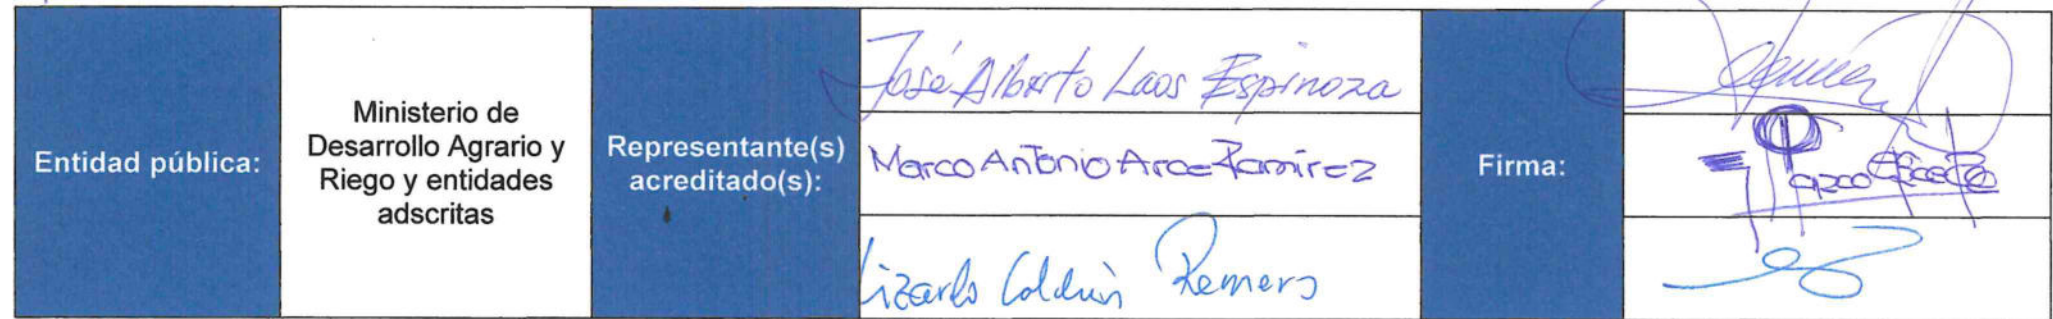 Entidad pública:
Ministerio de
Desarrollo Agrario y
Riego y entidades
adscritas
Representante(s)
acreditado(s):
José Alberto Laos Espinoza
Marco Antonio Arce Ramirez
Firma: